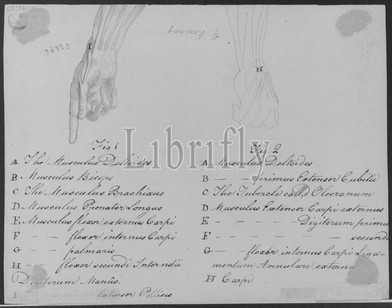 I
H
Fig 1
A The Musculus Deltoides
B Musculus Biceps
C The Musculus Brachiaus
D Musculus Pronator Longus
E Musculus flexor externus Carpi
F — — flexor internus Carpi
G — — palmaris
H — — flexor secundi Internodii
Digitorum Manus.
I Pollicis
Fig 2
A Musculus Deltoides
B — — primus Extensor Cubiti
C The Tubercle call'd Olecranum
D Musculus Extensor Carpi externus
E — — — Digitorum primus
F — — — secund
G — — flexor internus Carpi Liga-
mentum Annulare externu
H Carpi
Librifly